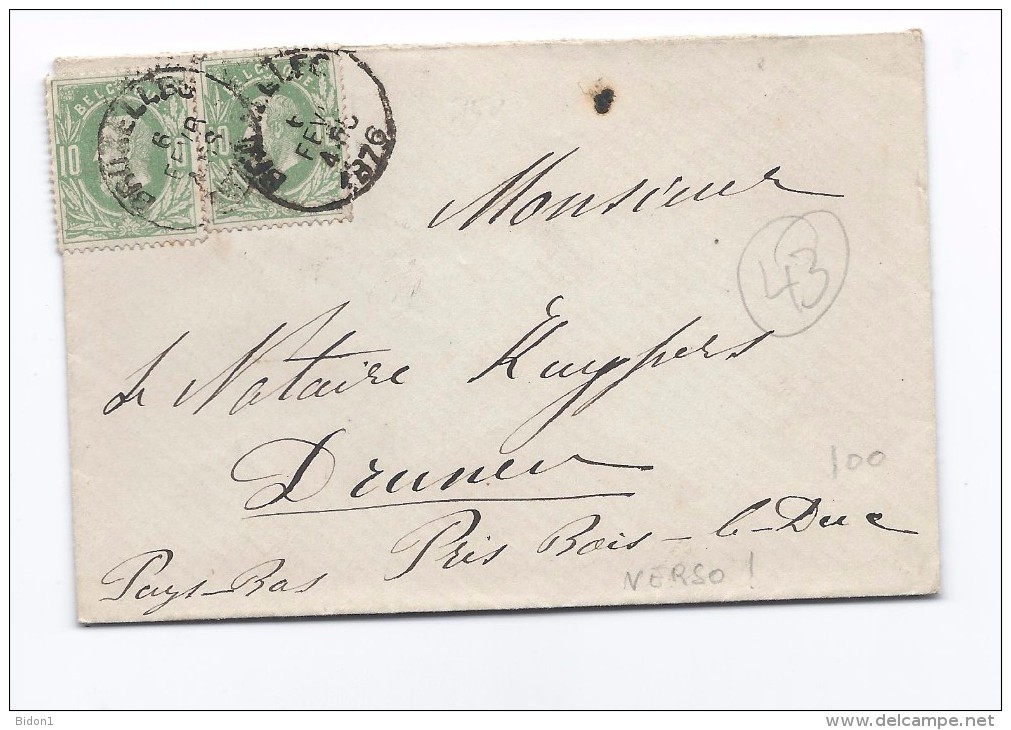 BELGIQUE
10
BRUXELLES
6
FEVR
BELGIQUE
BRUXELLES
6
FEVR
1876
Monsieur
43
Le Notaire Kuypers
Drunen
100
Près Bois-le-Duc
Pays-Bas
VERSO !
Bidon1
www.delcampe.net